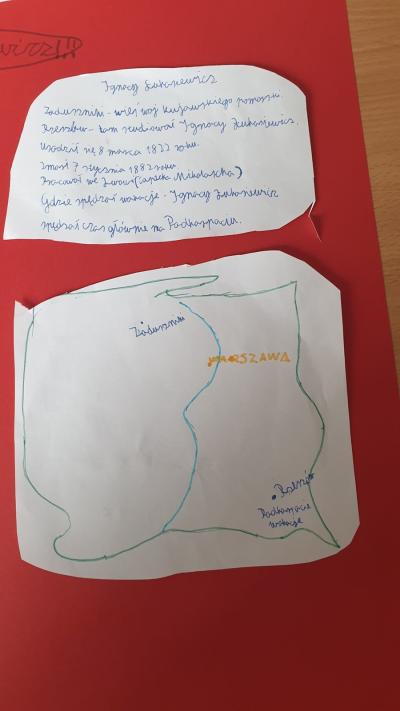 Ignacy Łukasiewicz
Zaduszniki - wieś woj Kujawskiego pomorski.
Rzeszów - tam studiował Ignacy Łukasiewicz.
Urodził się 8 marca 1822 roku.
Zmarł 7 stycznia 1882 roku
Pracował we Lwowie (apteka Mikolascha)
Gdzie spędzał wakacje - Ignacy Łukasiewicz
spędzał czas głównie na Podkarpaciu.
Zaduszniki
WARSZAWA
Podkarpacie
wakacje